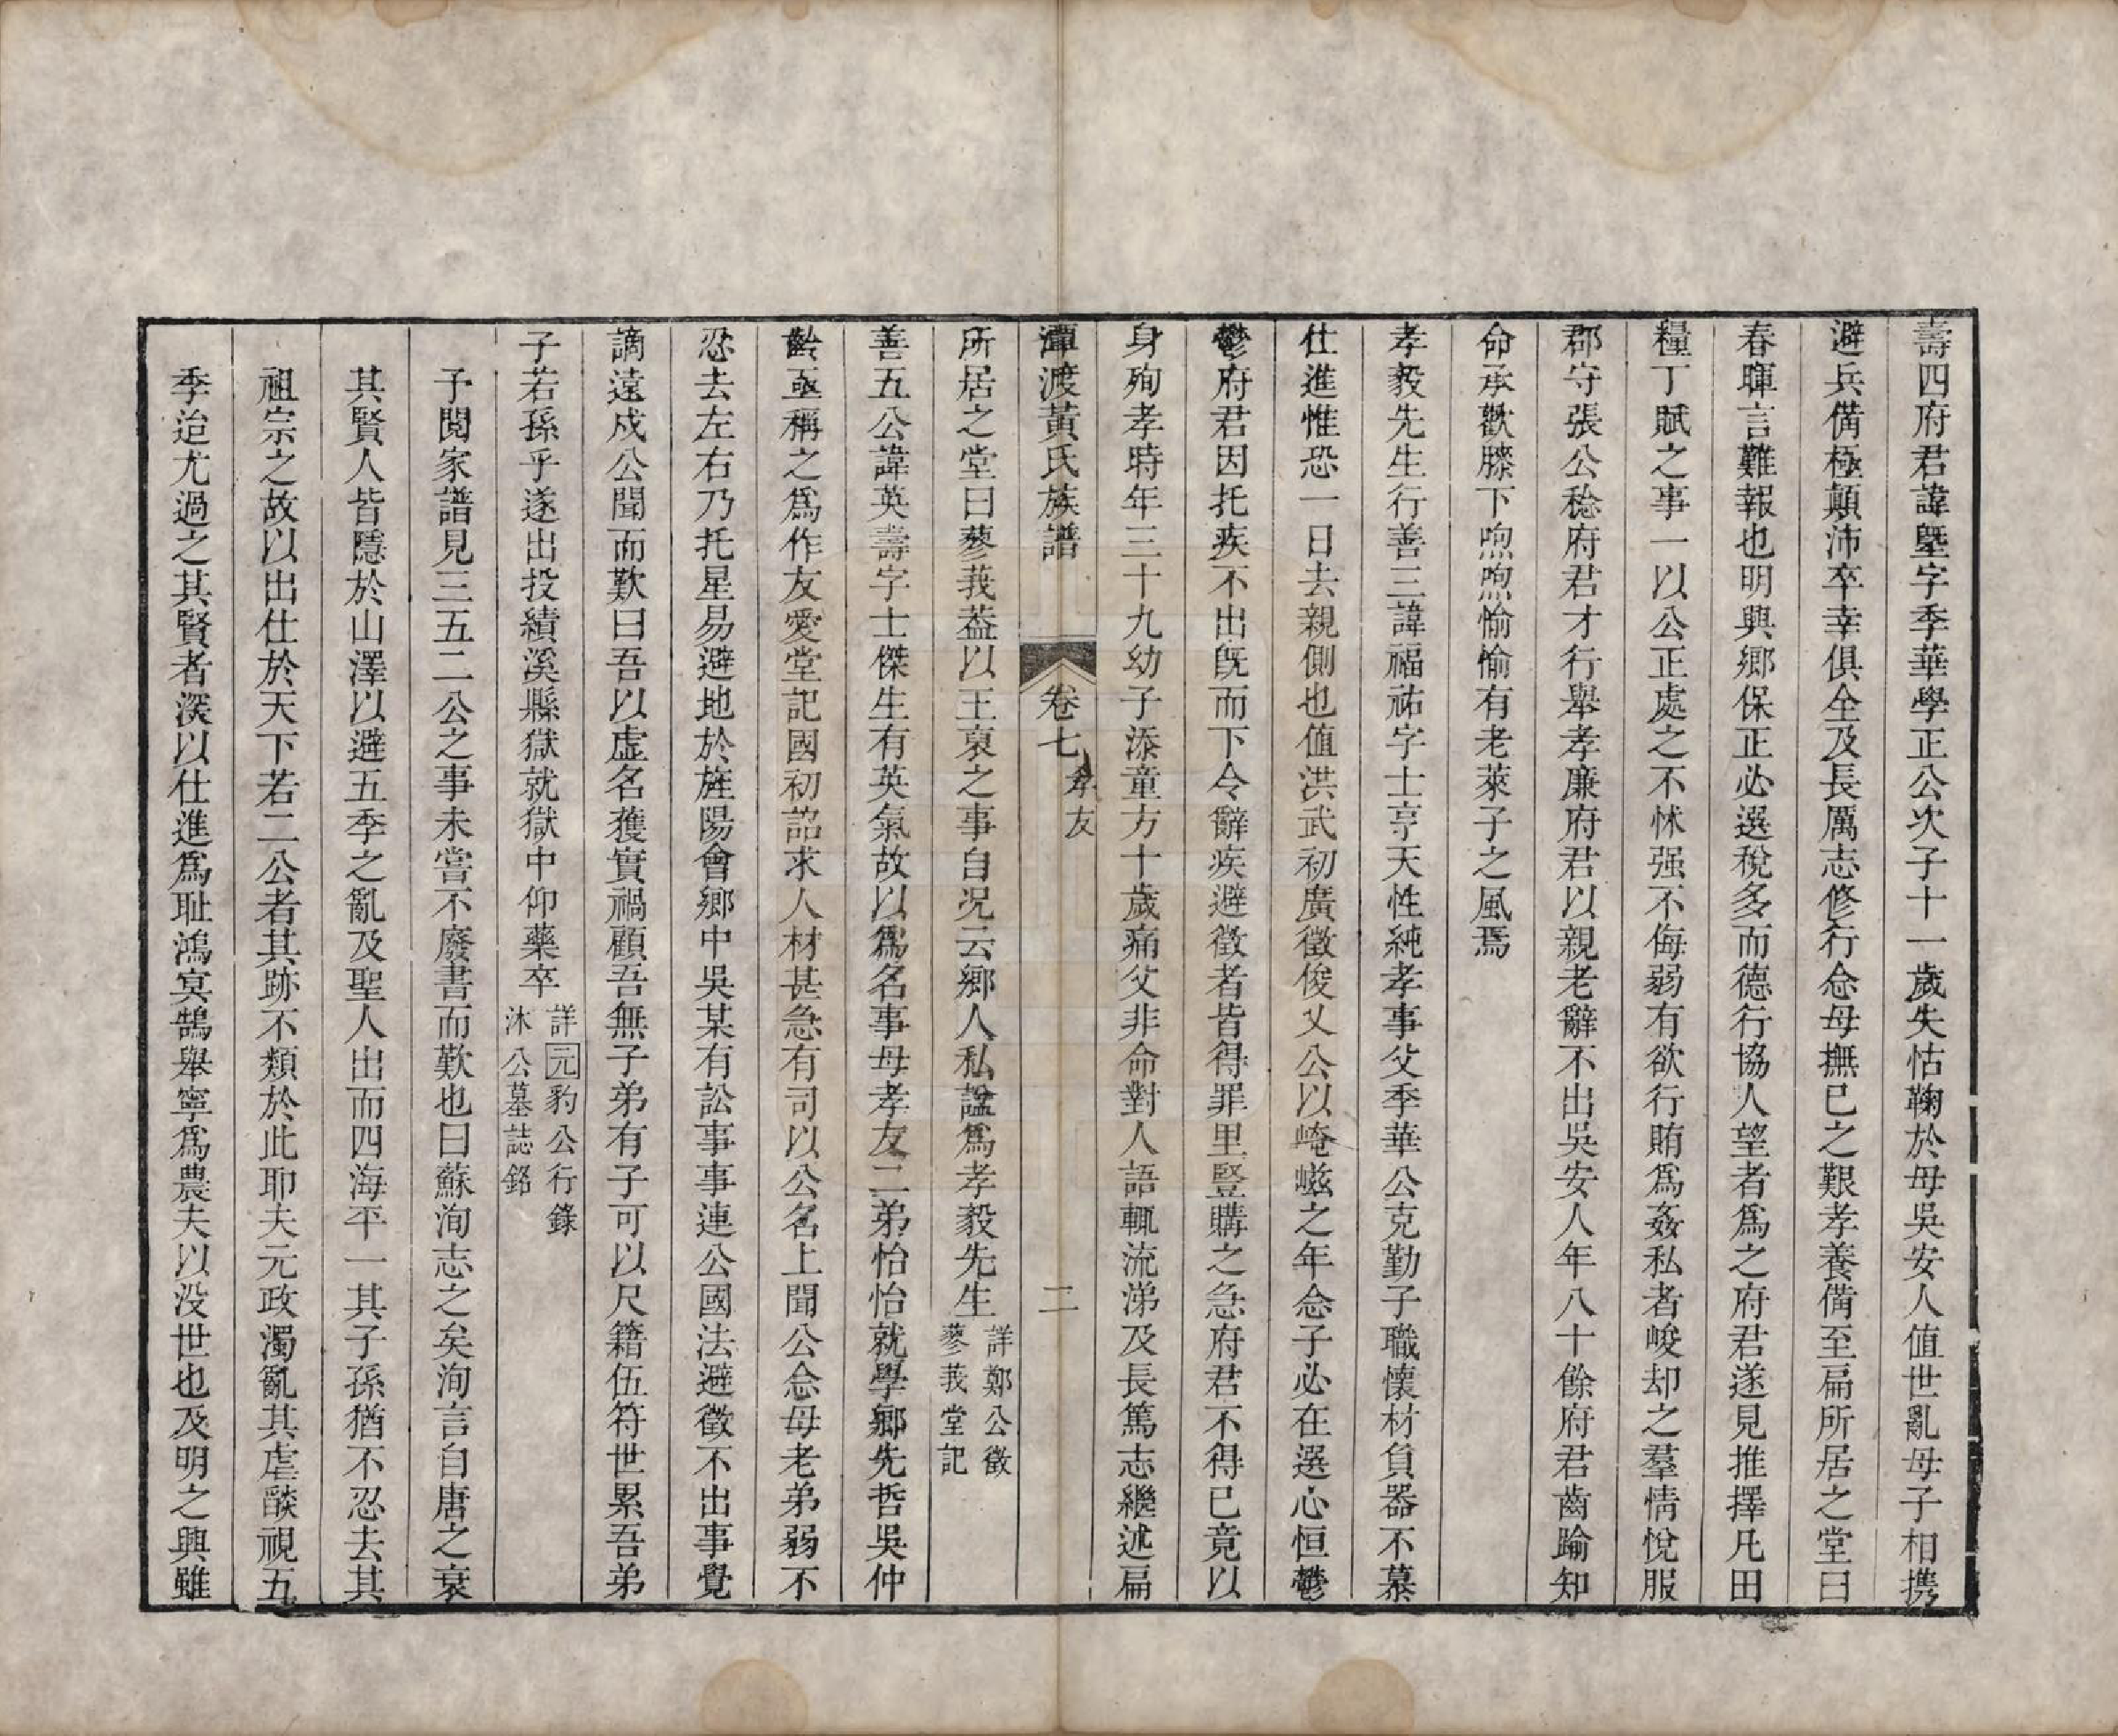 壽四府君諱壂字季華學正公次子十一歲失怙鞠於母吳安人值世亂母子相携
避兵備極顛沛卒幸俱全及長厲志修行念母撫已之艱孝養備至扁所居之堂曰
春暉言難報也明興鄉保正必選稅多而德行協人望者爲之府君遂見推擇凡田
糧丁賦之事一以公正處之不怵强不侮弱有欲行賄爲姦私者峻却之羣情悅服
郡守張公稔府君才行舉孝廉府君以親老辭不出吳安人年八十餘府君齒踰知
命承歡膝下喣喣愉愉有老萊子之風焉
孝毅先生行善三諱福祐字士亨天性純孝事父季華公克勤子職懷材負器不慕
仕進惟恐一日去親側也值洪武初廣徵俊乂公以崦嵫之年念子必在選心恒鬱
鬱府君因托疾不出旣而下令辭疾避徵者皆得罪里豎購之急府君不得已竟以
身殉孝時年三十九幼子添童方十歲痛父非命對人語輒流涕及長篤志繼述扁
潭渡黃氏族譜 卷七 孝友 二
所居之堂曰蓼莪葢以王裒之事自况云鄉人私諡爲孝毅先生詳鄭公徵蓼莪堂記
善五公諱英壽字士傑生有英氣故以爲名事母孝友二弟怡怡就學鄉先哲吳仲
齡亟稱之爲作友愛堂記國初詔求人材甚急有司以公名上聞公念母老弟弱不
忍去左右乃托星易避地於旌陽會鄉中吳某有訟事事連公國法避徵不出事覺
謫遠戍公聞而歎曰吾以虛名獲實禍顧吾無子弟有子可以尺籍伍符世累吾弟
子若孫乎遂出投績溪縣獄就獄中仰藥卒詳元豹公行錄沐公墓誌銘
予閱家譜見三五二公之事未嘗不廢書而歎也曰蘇洵志之矣洵言自唐之衰
其賢人皆隱於山澤以避五季之亂及聖人出而四海平一其子孫猶不忍去其
祖宗之故以出仕於天下若二公者其跡不類於此耶夫元政濁亂其虐燄視五
季治尤過之其賢者深以仕進爲耻鴻冥鵠舉寧爲農夫以没世也及明之興雖